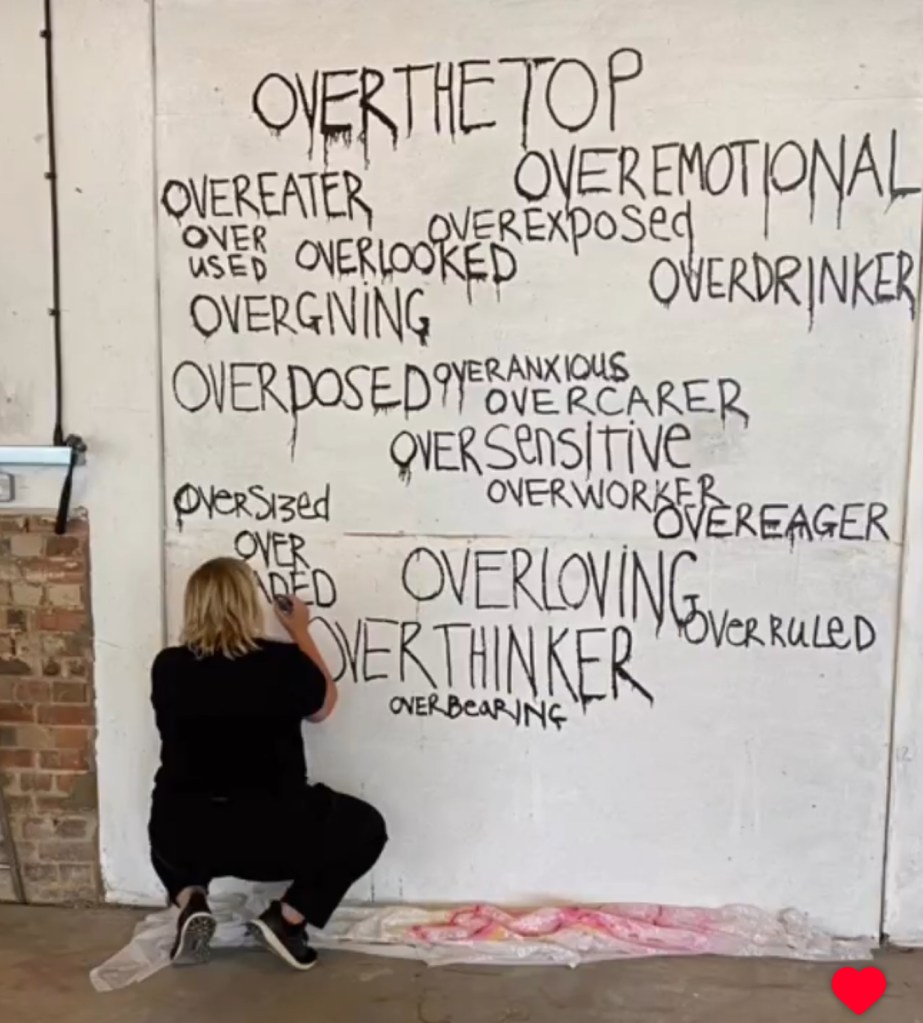 OVERTHETOP
OVEREMOTIONAL
OVEREATER
OVEREXPOSED
OVER
USED
OVERLOOKED
OVERDRINKER
OVERGINING
OVERDOSED
OVERANXIOUS
OVERCARER
OVERSENSITIVE
OVERSIZED
OVERWORKER
OVEREAGER
OVER
OVERLOVING
OVERRULED
OVERTHINKER
OVERBEARING